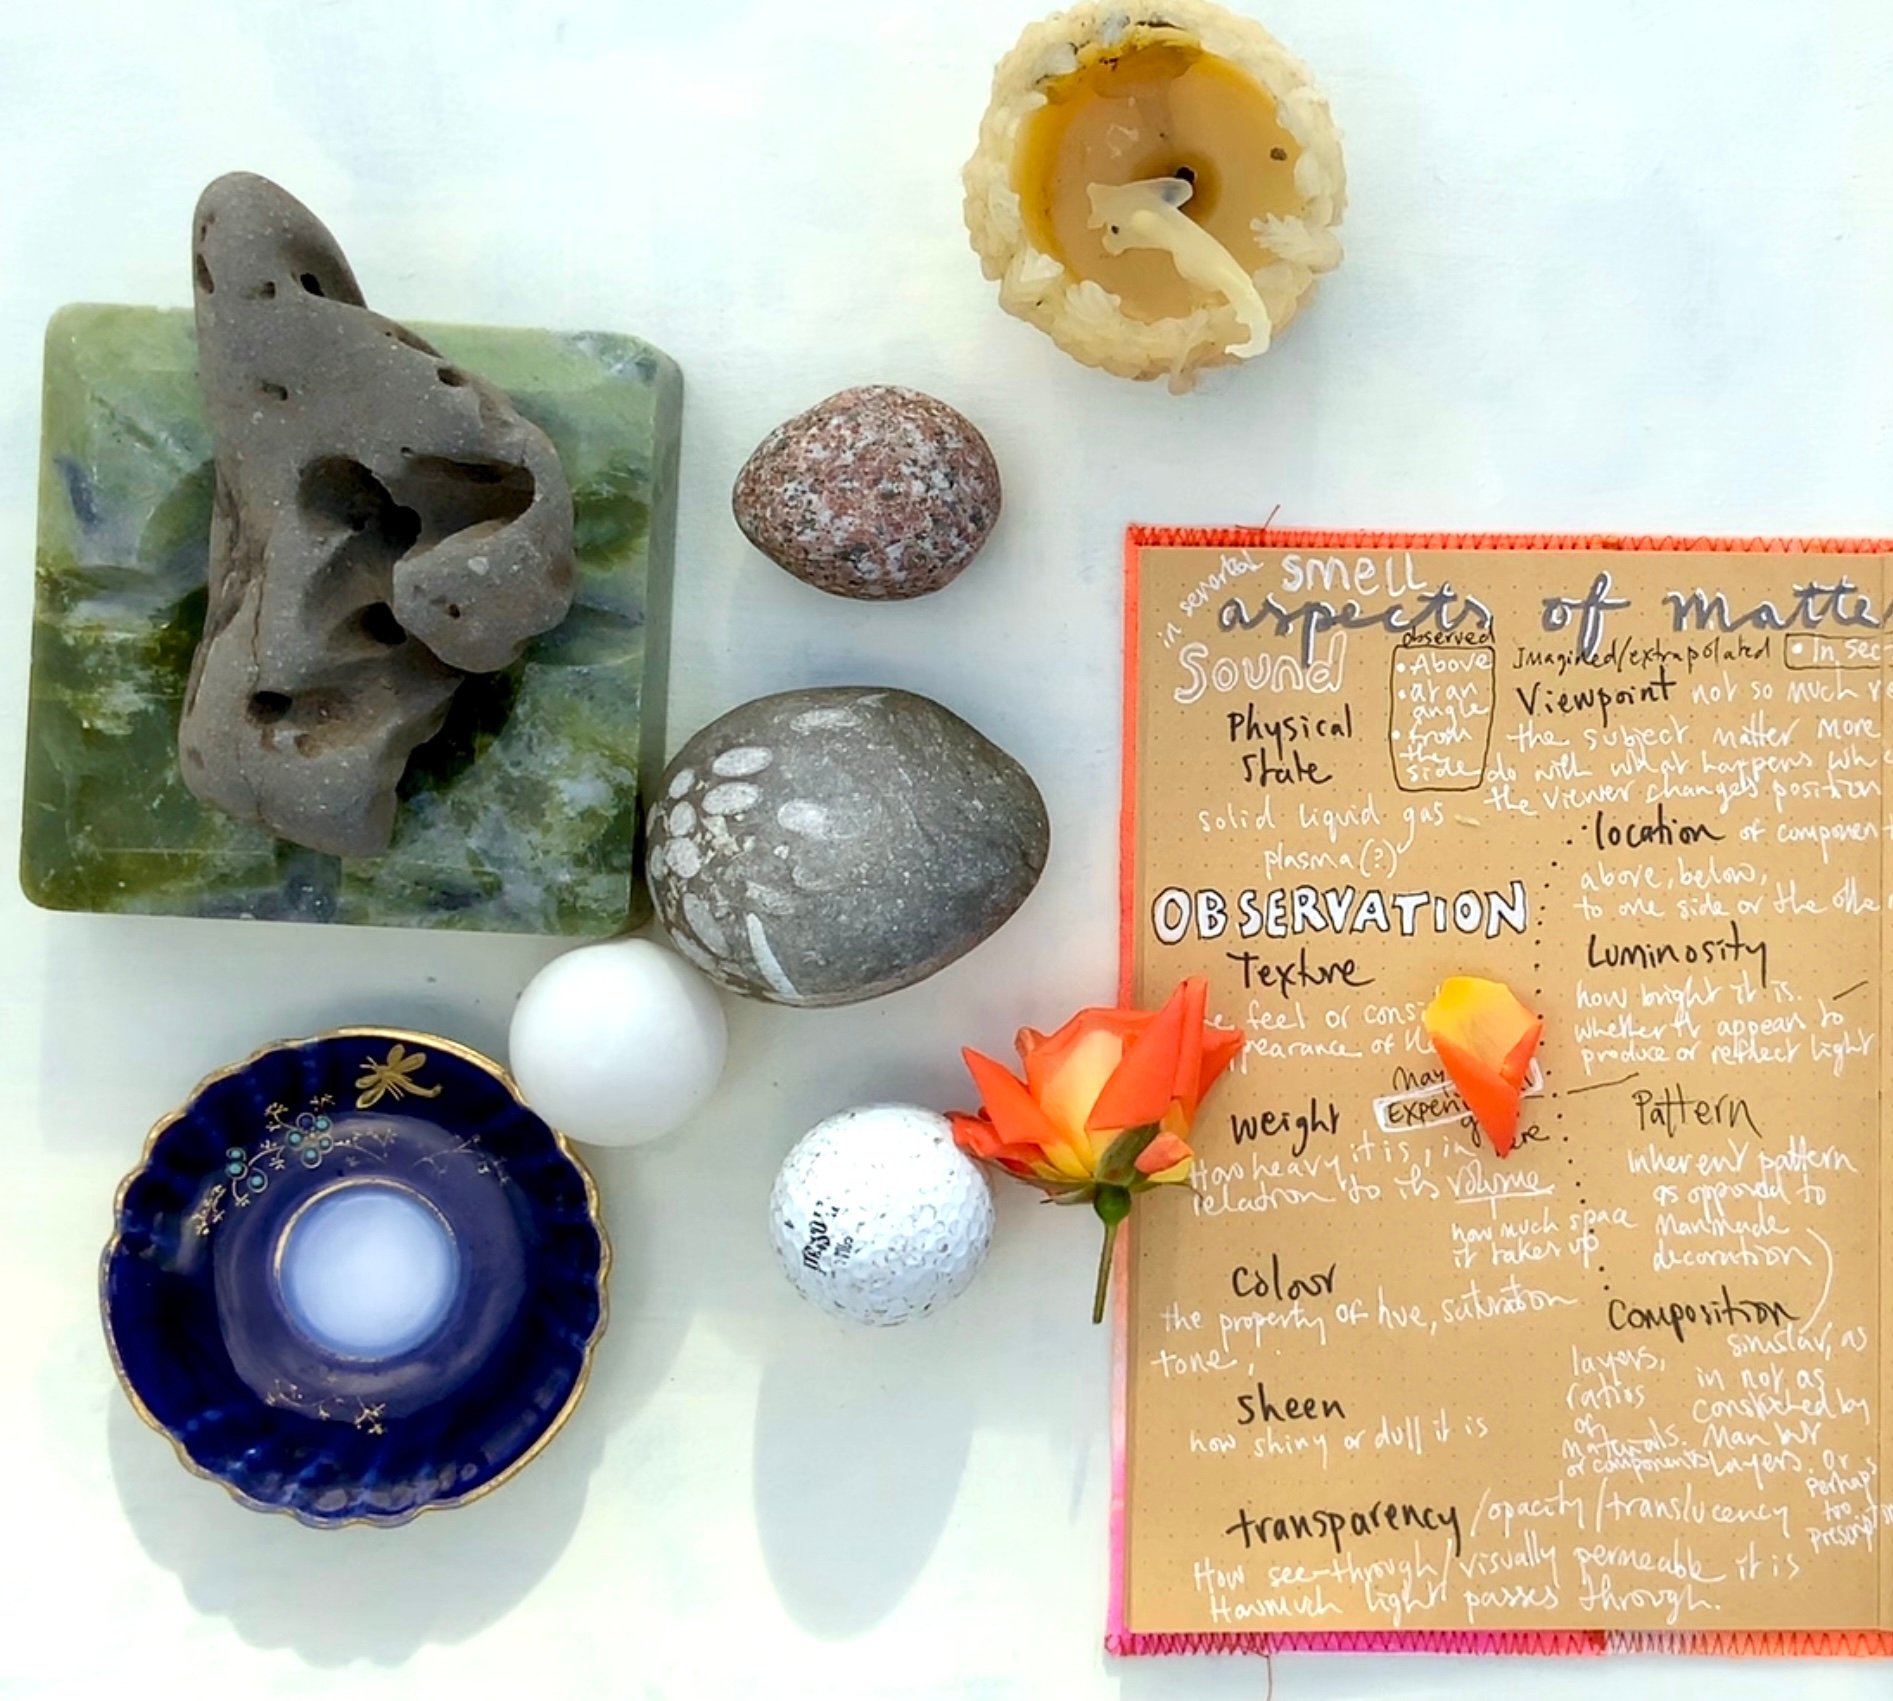 in
smell
aspects of matte
Sound
observed
• Above
• at an
angle
• from
the
side
Imagined/extrapolated
• In sec-
Viewpoint not so much
the subject matter more
do with what happens
the viewer changes position
Physical
State
solid liquid gas
plasma(?)
• location of componen
above, below,
to one side or the
OBSERVATION
Texture
feel or cons
pearance of
Luminosity
how bright it is.
whether it appears to
produce or reflect light
Weight
How heavy it is, in
relation to its volume
how much space
it takes up
Pattern
Inherent pattern
as opposed to
Manmade
decoration
Colour
the property of hue, saturation
tone,
Composition
layers,
ratios
of
materials.
or components
similar, as
in not as
constructed by
Man but
layers. or
perhaps
too
prescript
Sheen
how shiny or dull it is
transparency/opacity/translucency
How see-through/visually permeable it is
How much light passes through.